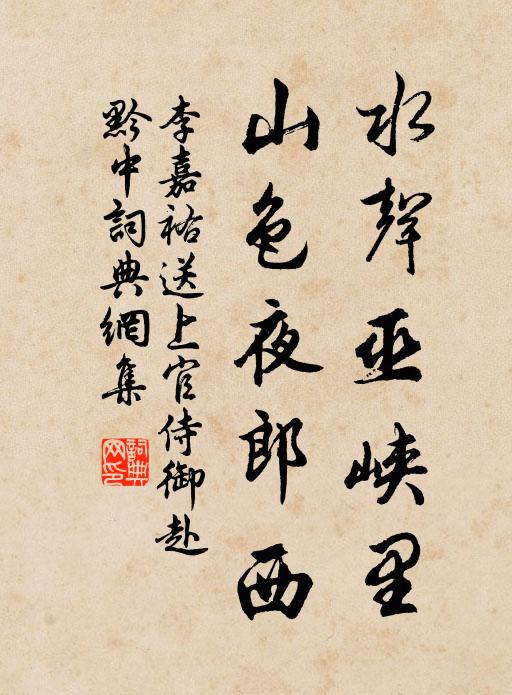 水聲巫峽里
山色夜郎西
李嘉祐送上官侍御赴
黔中詞典網集
詞典網印